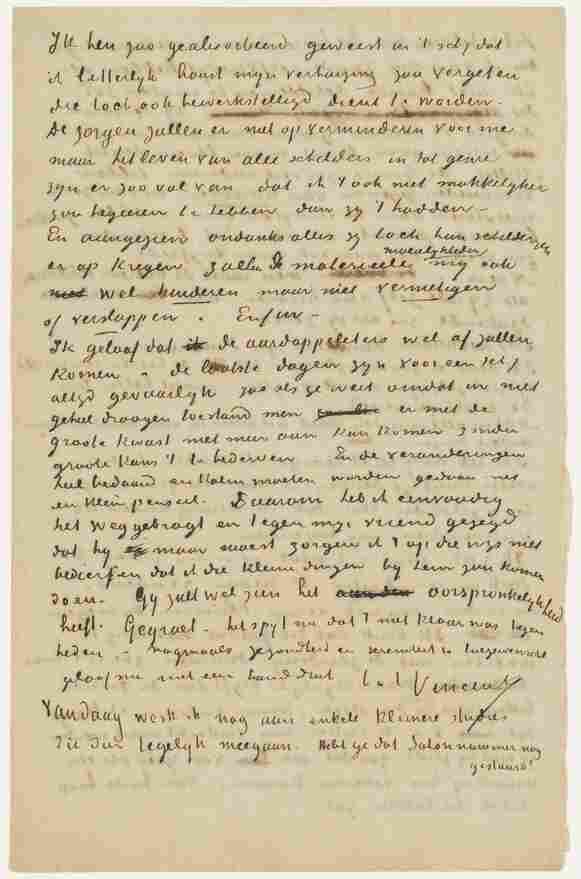 Ik ben zoo geabsorbeerd geweest in 't schij dat
ik letterlijk haast mijn verhuizing zou vergeten
die toch ook bewerkstelligd dient te worden.
De zorgen zullen er niet op verminderen voor me
maar het leven van alle schilders in dat genre
zyn er zoo vol van dat ik 't ook niet makkelyker
zou begeeren te hebben dan zy 't hadden –
En aangezien ondanks alles zy toch hun schilderyen
er op kregen zullen de materieele moeielykheden my ook
niet wel hinderen maar niet vernietigen
of verslappen. Enfin –
Ik geloof dat de aardappeleters wel af zullen
komen – de laatste dagen zyn voor een schy
altyd gevaarlyk zoo als ge weet omdat in niet
geheel droogen toestand men er met de
groote kwast niet meer aan kan komen zonder
groote kans 't te bederven. En de veranderingen
heel bedaard en kalm moeten worden gedaan met
een klein penseel. Daarom heb ik eenvoudig
het weg gebragt en tegen myn vriend gezegd
dat hy maar moest zorgen ik 't op die wys niet
bedierf en dat ik die kleine dingen by hem zou komen
doen. Gy zult wel zien het oorspronkelykheid
heeft. Gegroet – het spyt me dat 't niet klaar was tegen
heden – nogmaals gezondheid en sereniteit toegewenscht
geloof me met een handdruk t.à t. Vincent
Vandaag werk ik nog aan enkele kleinere studies
die dan tegelyk meegaan. Hebt ge dat Salonnummer nog
gestuurd?